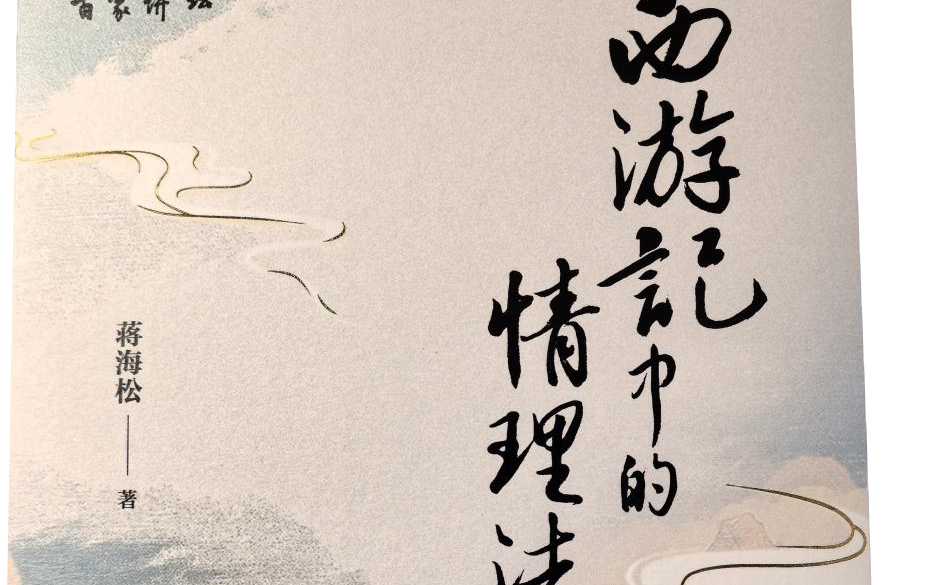 百家讲坛
西游記中的
情理法
蒋海松——著